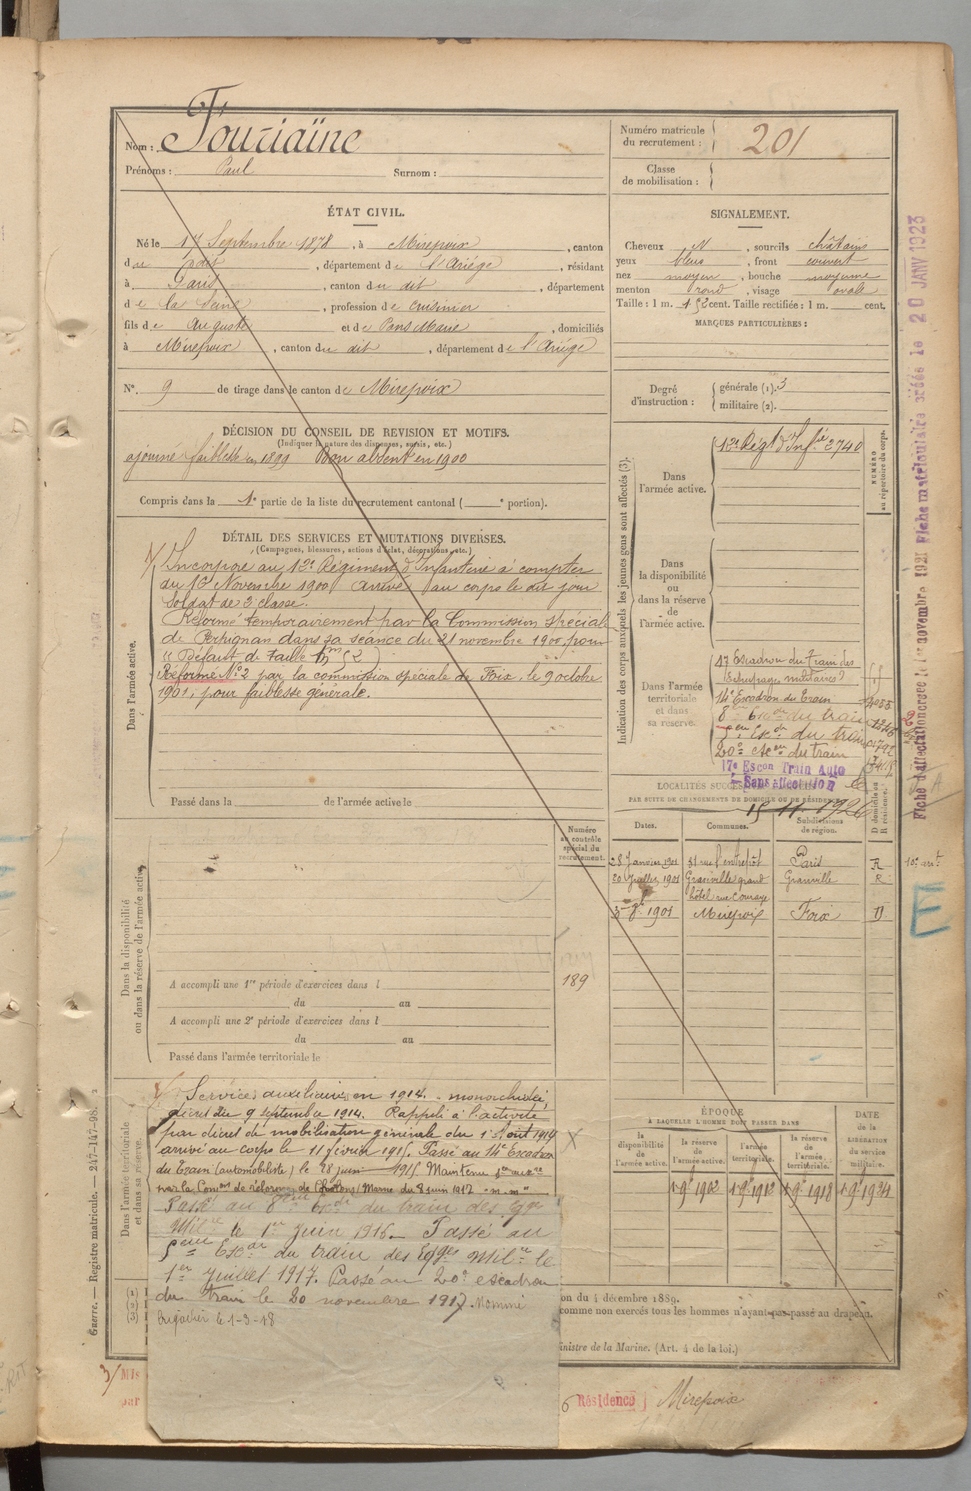 Nom : Fouriaïne
Prénoms : Paul Surnom :
Numéro matricule
du recrutement : 201
Classe
de mobilisation :
ÉTAT CIVIL.
Né le 17 Septembre 1878, à Mirepoix, canton
du dit, département de l'Ariège, résidant
à Paris, canton du dit, département
de la Seine, profession de cuisinier
fils de Auguste et de Pons Marie, domiciliés
à Mirepoix, canton du dit, département de l'Ariège
N° 9 de tirage dans le canton de Mirepoix
SIGNALEMENT.
Cheveux N, sourcils châtains
yeux bleus, front couvert
nez moyen, bouche moyenne
menton rond, visage ovale
Taille : 1 m. 52 cent. Taille rectifiée : 1 m. cent.
MARQUES PARTICULIÈRES :
Degré
d'instruction :
générale (1). 3
militaire (2).
DÉCISION DU CONSEIL DE REVISION ET MOTIFS.
(Indiquer la nature des dispenses, sursis, etc.)
ajourné faiblesse en 1899 Bon absent en 1900
Compris dans la 1e partie de la liste du recrutement cantonal ( e portion).
DÉTAIL DES SERVICES ET MUTATIONS DIVERSES.
(Campagnes, blessures, actions d'éclat, décorations, etc.)
Dans l'armée active.
Incorporé au 12e Régiment d'Infanterie à compter
du 16 Novembre 1900 Arrivé au corps le dit jour
Soldat de 2 classe.
Réformé temporairement par la Commission spéciale
de Perpignan dans sa séance du 21 novembre 1900 pour
"Défaut de taille 1m52"
Réformé N° 2 par la commission spéciale de Foix, le 9 octobre
1901, pour faiblesse générale.
Passé dans la de l'armée active le
Indication des corps auxquels les jeunes gens sont affectés (3).
Dans
l'armée active.
12e Régt d'Infie 2740
NUMÉRO
au répertoire du corps.
Dans
la disponibilité
ou
dans la réserve
de
l'armée active.
Dans l'armée
territoriale
et dans
sa réserve.
17 Escadron du Train des
Equipages militaires
14e Escadron du Train
8e Escon du train
5eme Escon du train
20e escon du train
17e Escon Train Auto
Sans affectation
15 11 1926
LOCALITÉS SUCCESSIVES
PAR SUITE DE CHANGEMENTS DE DOMICILE OU DE RÉSIDENCE
Dates. Communes. Subdivisions
de région.
D domicile ou
R résidence.
28 Janvier 1901 31 rue l'entrepôt Paris R 10e arrt
20 Juillet 1901 Granville grand Granville R
hôtel rue Couraye
5 9bre 1901 Mirepoix Foix D
Numéro
au contrôle
spécial du
recrutement.
189
Dans la disponibilité
ou dans la réserve de l'armée active.
A accompli une 1re période d'exercices dans l
du au
A accompli une 2e période d'exercices dans l
du au
Passé dans l'armée territoriale le
Dans l'armée territoriale
et dans sa réserve.
Services auxiliaires en 1914.
décret du 9 septembre 1914. Rappelé à l'activité
par décret de mobilisation générale du 1er Août 1914
arrivé au corps le 11 février 1915. Passé au 14e Escadron
du Train (automobiliste) le 28 juin 1915 Maintenu
par la Comon de réforme de Châlons s/Marne du 8 juin 1917
Passé au 8eme Escon du train des Eqges
Milres le 1er Juin 1916. Passé au
5eme Escon du train des Eqges Milres le
1er Juillet 1917. Passé au 20e escadron
du train le 20 novembre 1917. Nommé
brigadier le 1-3-18.
ÉPOQUE
À LAQUELLE L'HOMME DOIT PASSER DANS
la
disponibilité
de
l'armée active.
la réserve
de
l'armée active.
l'armée
territoriale.
la réserve
de
l'armée
territoriale.
DATE
de la
LIBÉRATION
du service
militaire.
1 9bre 1902 1 9bre 1912 1 9bre 1918 1 9bre 1924
(1)
(2)
(3)
on du 4 décembre 1889.
comme non exercés tous les hommes n'ayant pas passé au drapeau.
inistre de la Marine. (Art. 4 de la loi.)
Mis
par
Résidence Mirepoix
Guerre. — Registre matricule. — 247-147-98.
Fiche d'affectation créée le 1er novembre 1921 Fiche matriculaire créée le 20 JANV 1923
E